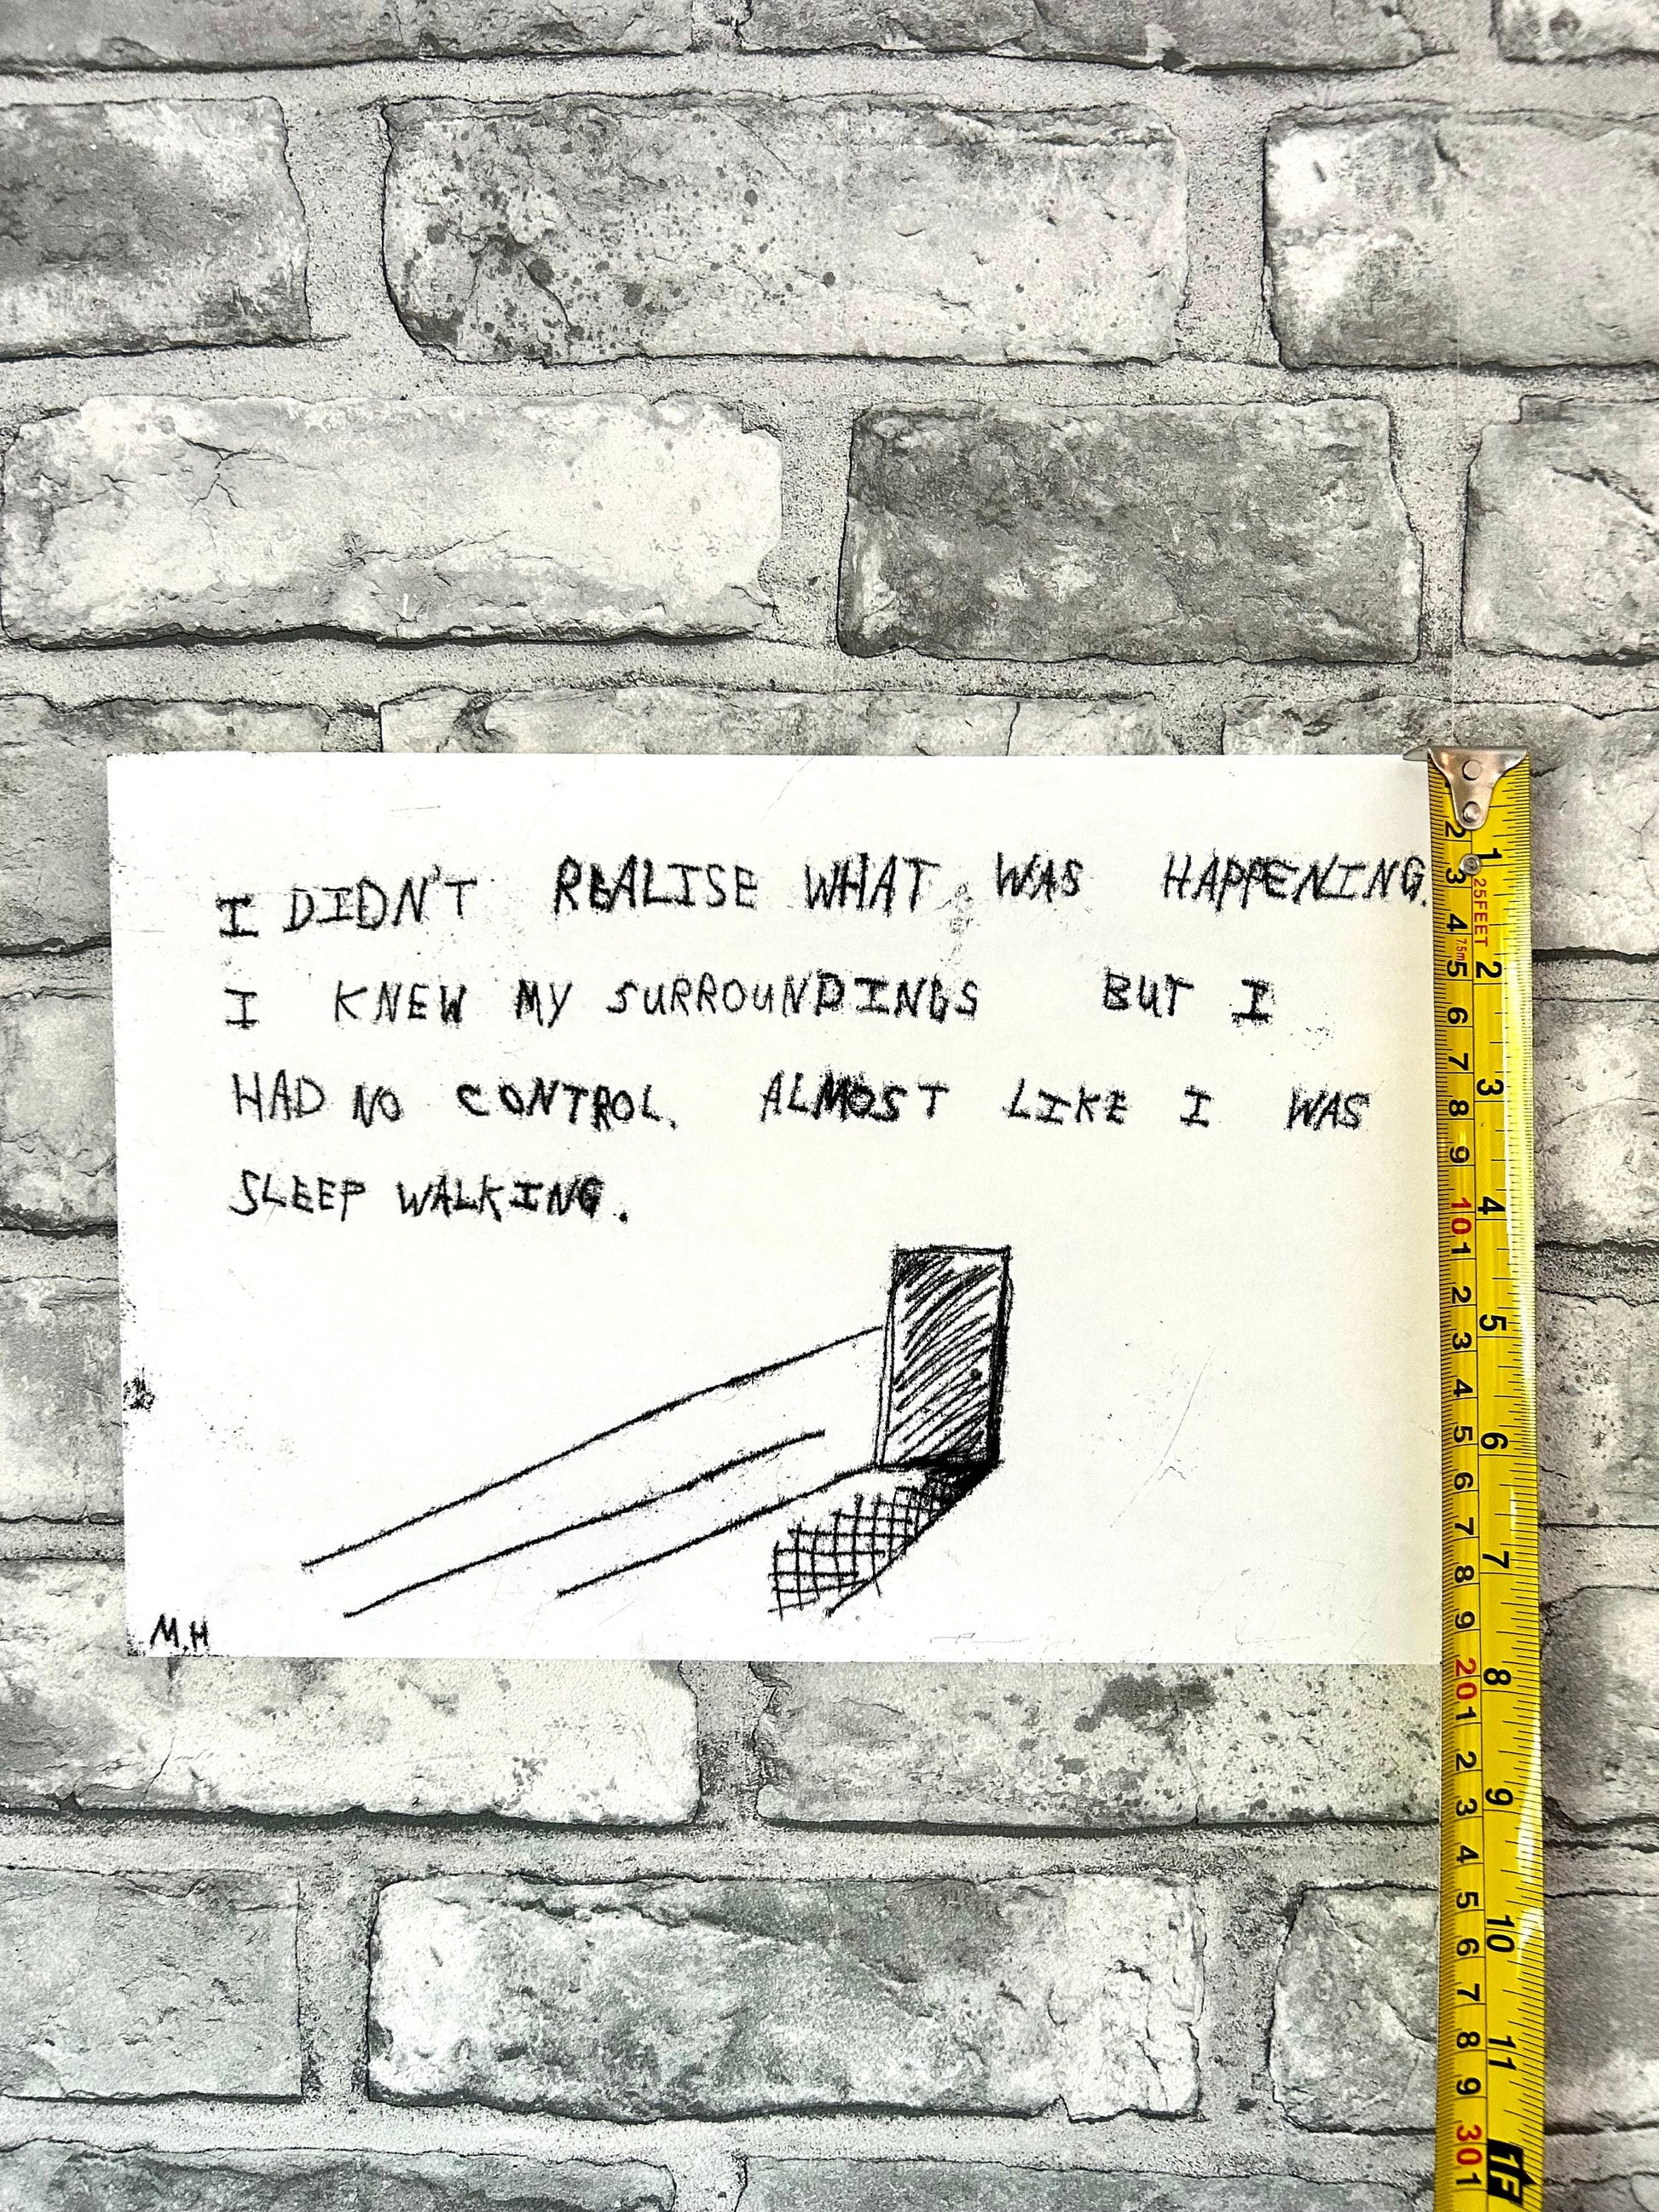 I DIDN'T REALISE WHAT WAS HAPPENING.
I KNEW MY SURROUNDINGS BUT I
HAD NO CONTROL. ALMOST LIKE I WAS
SLEEP WALKING.
M.H
25FEET
7.5m
2
3
4
5
6
7
8
9
10
1
2
3
4
5
6
7
8
9
20
1
2
3
4
5
6
7
8
9
30
1
1
2
3
4
5
6
7
8
9
10
11
1F